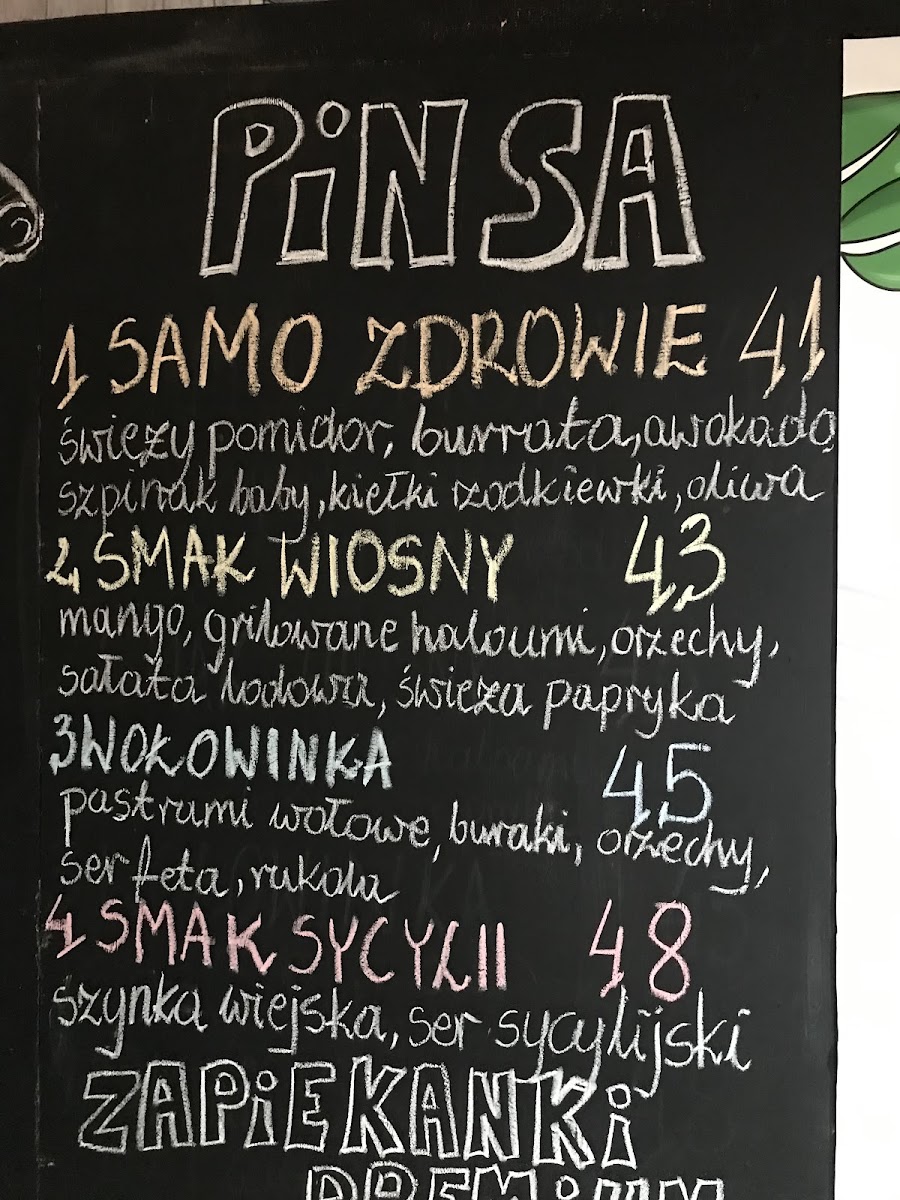 PiNSA
1 SAMO ZDROWIE 41
świeży pomidor, burrata, awokado
szpinak baby, kiełki rzodkiewki, oliwa
2 SMAK WIOSNY 43
mango, grilowane haloumi, orzechy,
sałata lodowa, świeża papryka
3 WOŁOWINKA 45
pastrami wołowe, buraki, orzechy,
ser feta, rukola
4 SMAK SYCYLII 48
szynka wiejska, ser sycylijski
ZAPiEKANKi
PREMiUM